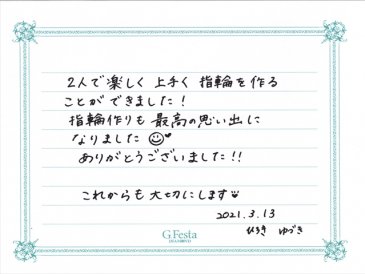 2人で楽しく上手く指輪を作る
ことができました!
指輪作りも最高の思い出に
なりました
ありがとうございました!!
これからも大切にします
2021.3.13
ひろき ゆづき
G.Festa